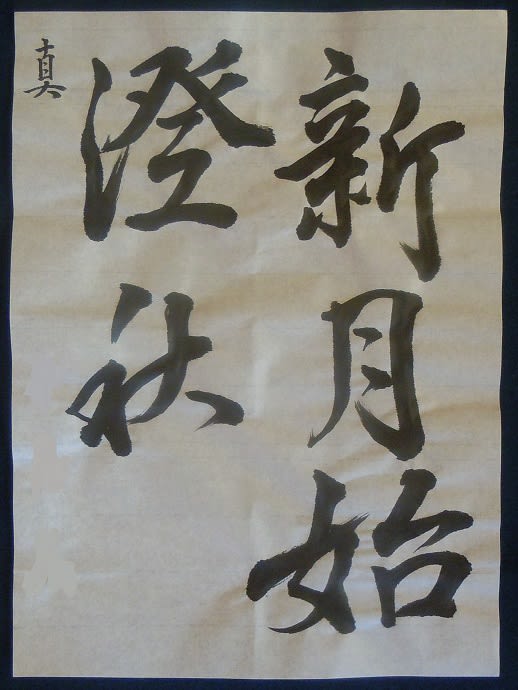 新月始
澄秋
真